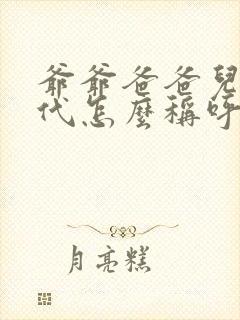 爺爺爸爸兒
代怎麼稱呼
月亮糕